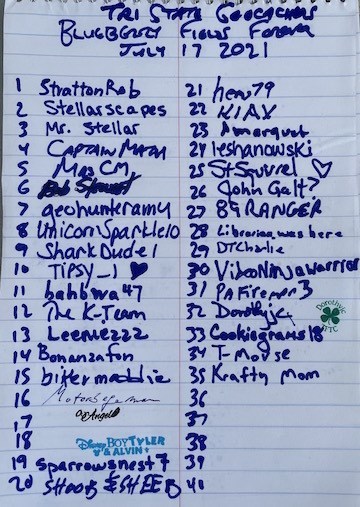 TRI STATE GEOCACHERS
BLUEBERRY FIELDS FOREVER
JULY 17 2021
1 StrattonRob
2 Stellarscapes
3 Mr. Stellar
4 CAPTAIN MATH
5 Mrs CM
6
7 geohunteramy
8 UnicornSparkle10
9 SharkDude1
10 TIPSY_1
11 bahbwa47
12 The K-Team
13 Leentezzz
14 Bonanzafan
15 bittermaddie
16
Angel
17
18 Disney BOY TYLER & ALVIN
19 Sparrowsnest7
20 SHOOB & SHEEB
21 hern79
22 KIAX
23
24 leshanowski
25 StSquirel ♡
26 John Galt?
27 89 RANGER
28 Librarian was here
29 DTCharlie
30 VikeNinjawarrior
31 PAFireman3
32 Dorothyjc
Dorothyjc
TTC
33 Cookiegrams18
34 T-Mouse
35 Krafty Mom
36
37
38
39
40